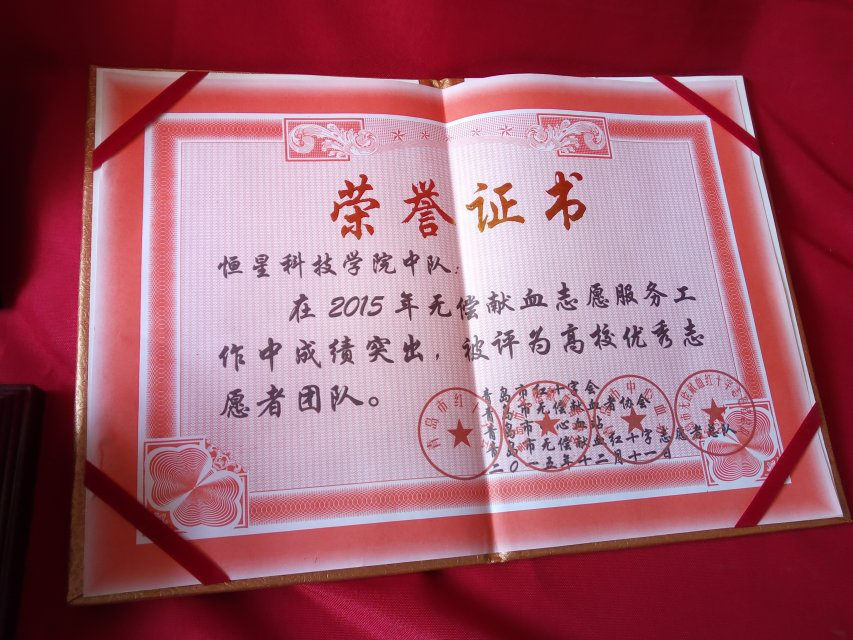 荣誉证书
恒星科技学院中队:
在 2015 年无偿献血志愿服务工
作中成绩突出，被评为高校优秀志
愿者团队。
青岛市红十字会
青岛市无偿献血者协会
青岛市中心血站
青岛市无偿献血红十字志愿者总队
二〇一五年十二月十一日